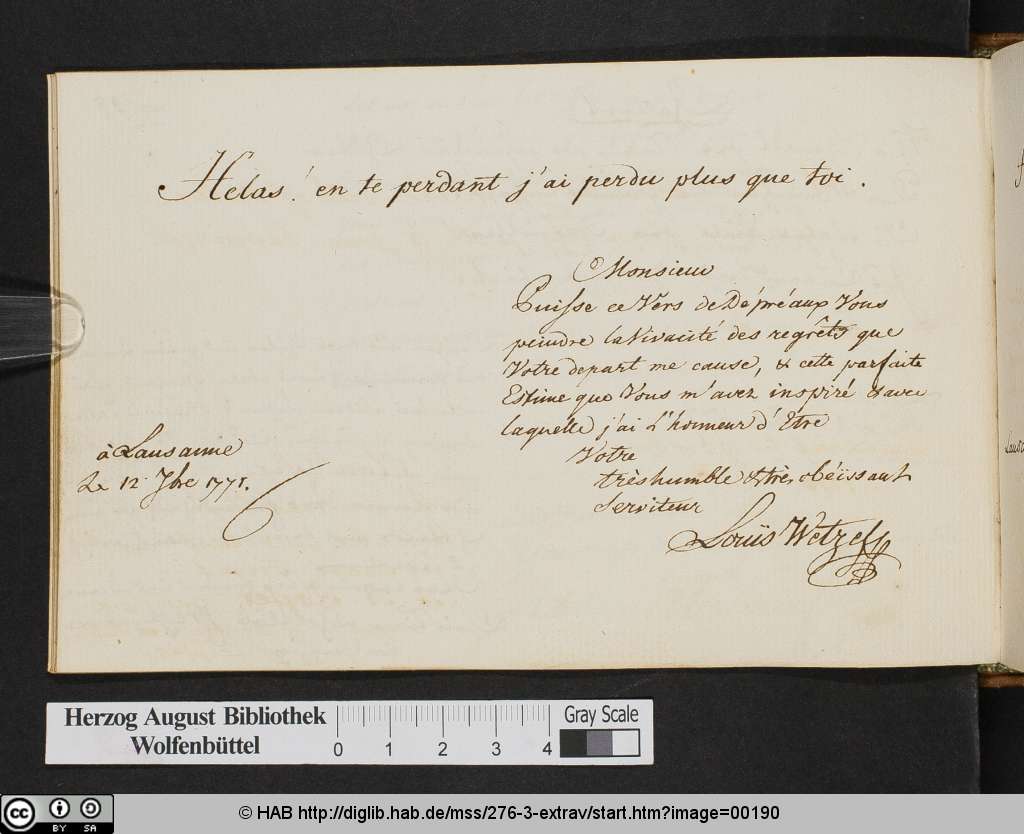 Helas! en te perdant j'ai perdu plus que toi.
Monsieur
Puisse ce Vers de Dépréaux Vous
peindre la Vivacité des regrêts que
Votre depart me cause, & cette parfaite
Estime que Vous m'avez inspiré & avec
laquelle j'ai L'honneur d'Etre
Votre
très humble & très obéissant
Serviteur
Louïs Wetzel
à Lausanne
Le 12 7bre 1771.
Herzog August Bibliothek
Wolfenbüttel
0 1 2 3 4
Gray Scale
cc BY SA
© HAB http://diglib.hab.de/mss/276-3-extrav/start.htm?image=00190